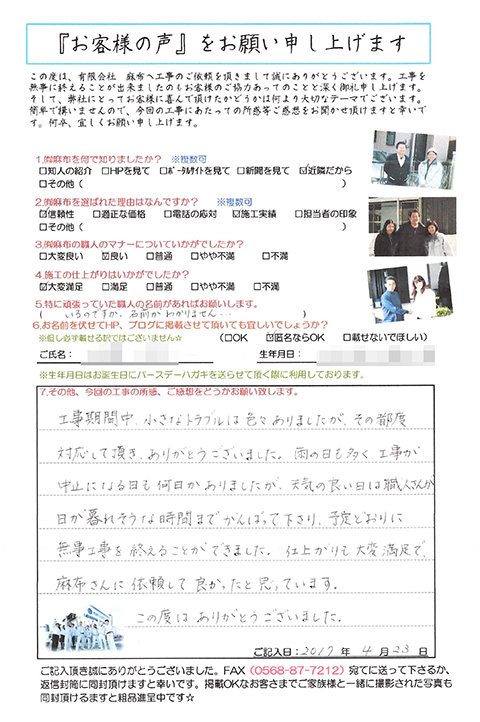 『お客様の声』をお願い申し上げます
この度は、有限会社 麻布へ工事のご依頼を頂きまして誠にありがとうございます。工事を
無事に終えることが出来ましたのもお客様のご協力あってのことと深く御礼申し上げます。
そして、弊社にとってお客様に喜んで頂けたかどうかは何より大切なテーマでございます。
簡単で構いませんので、今回の工事にあたっての所感等ご感想をお聞かせ頂けますと幸いで
す。何卒、宜しくお願い申し上げます。
1.㈲麻布を何で知りましたか？ ※複数可
□知人の紹介 □HPを見て □ﾎﾟｰﾀﾙｻｲﾄを見て □新聞を見て ☑近隣だから
□その他（ ）
2.㈲麻布を選ばれた理由はなんですか？ ※複数可
☑信頼性 □適正な価格 □電話の応対 ☑施工実績 □担当者の印象
□その他（ ）
3.㈲麻布の職人のマナーについていかがでしたか？
□大変良い ☑良い □普通 □やや不満 □不満
4.施工の仕上がりはいかがでしたか？
☑大変満足 □満足 □普通 □やや不満 □不満
5.特に頑張っていた職人の名前があればお願いします。
（ いるのですが、名前がわかりません… ）
6.お名前を伏せてHP、ブログに掲載させて頂いても宜しいでしょうか？
※但し必ず載せる訳ではございません☆ （□OK ☑匿名ならOK □載せないでほしい）
ご氏名： 生年月日：
※生年月日はお誕生日にバースデーハガキを送らせて頂く際に利用しております。
7.その他、今回の工事の所感、ご感想をどうかお願い致します。
工事期間中、小さなトラブルは色々ありましたが、その都度
対応して頂き、ありがとうございました。雨の日も多く、工事が
中止になる日も何日かありましたが、天気の良い日は職人さんが
日が暮れそうな時間までがんばって下さり、予定どおりに
無事工事を終えることができました。仕上がりも大変満足で、
麻布さんに依頼して良かったと思っています。
この度はありがとうございました。
ご記入日：2017 年 4 月 23 日
ご記入頂き誠にありがとうございました。FAX（0568-87-7212）宛てに送って下さるか、
返信封筒に同封頂けますと幸いです。掲載OKなお客さまでご家族様と一緒に撮影された写真も
同封頂けるますと粗品進呈中です☆